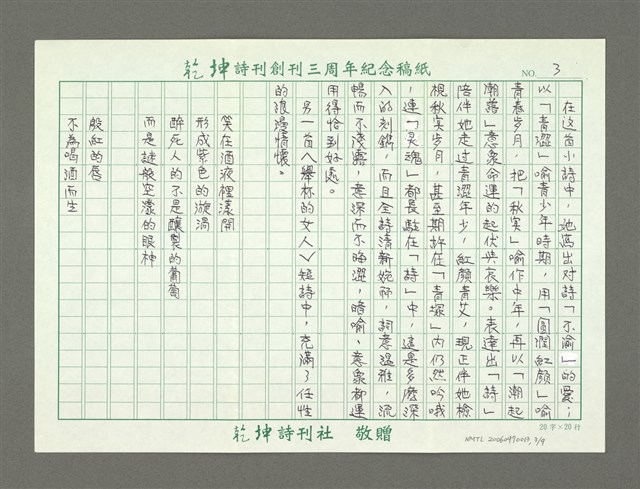 乾坤詩刊創刊三周年紀念稿紙
NO. 3
在这首小詩中，她寫出对詩「不渝」的愛；
以「青澀」喻青少年時期，用「圓潤紅顏」喻
青春岁月，把「秋实」喻作中年，再以「潮起
潮落」意象命運的起伏与哀樂。表達出「詩」
陪伴她走过青澀年少，紅顏青艾，現正伴她檢
視秋实岁月，甚至期許在「青塚」內仍然吟哦
，連「灵魂」都長駐在「詩」中，這是多麽深
入的刻鏤，而且全詩清新婉雅，詞意溫雅，流
暢而不淺露，意深而不晦澀，暗喻、意象都運
用得恰到好处。
另一首〈舉杯的女人〉短詩中，充滿了任性
的浪漫情懷。
笑在酒液裡漾開
形成紫色的漩渦
醉死人的不是釀製的葡萄
而是謎般空濛的眼神
殷紅的唇
不為喝酒而生
乾坤詩刊社 敬贈
20字×20行
NMTL 20060490013, 3/9